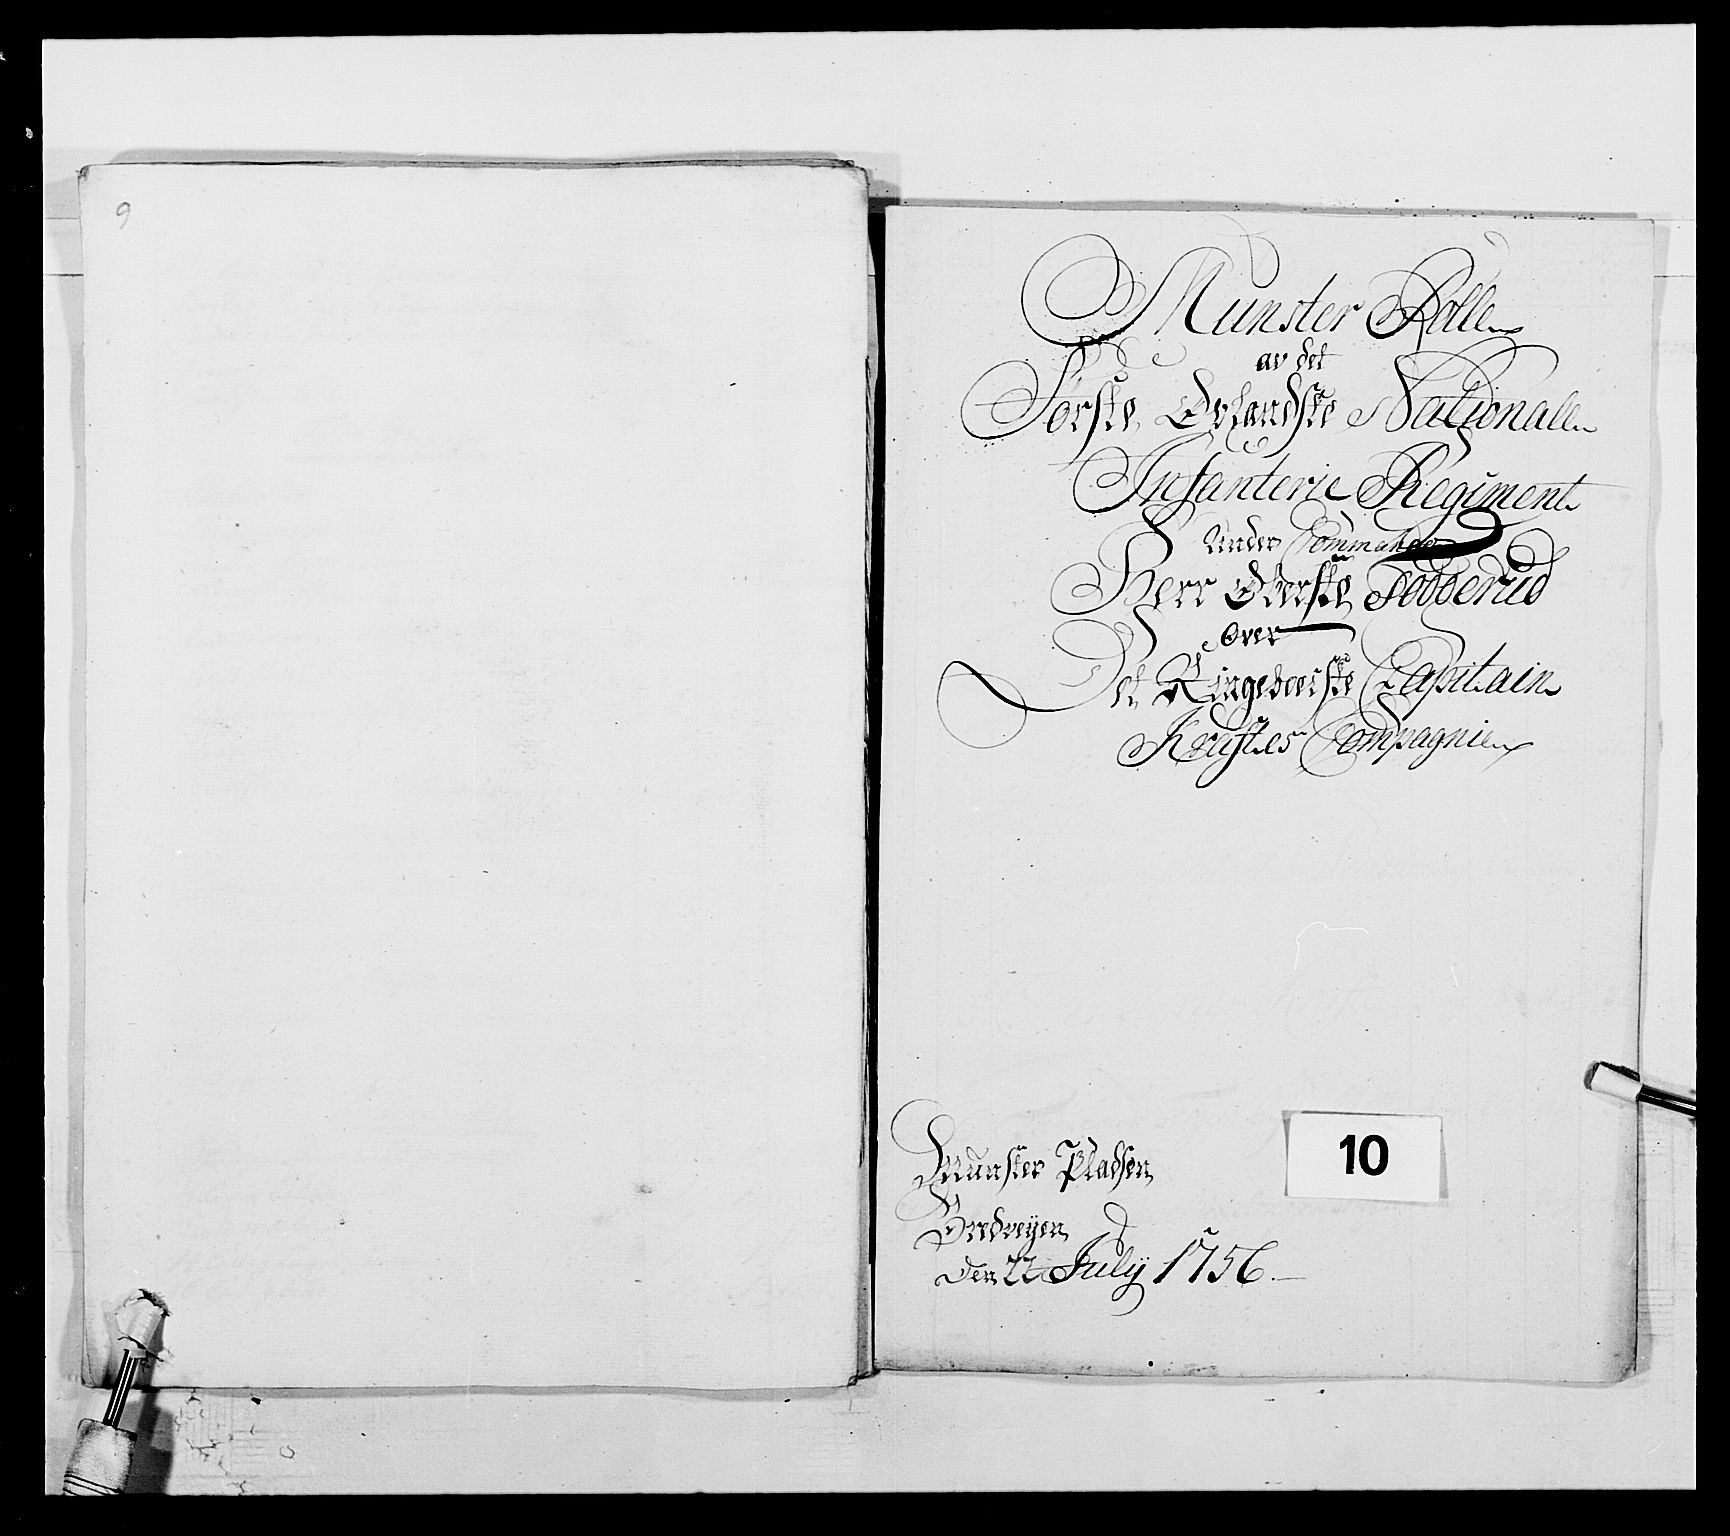 9
Munster Rolle
av det
Første Oplandske Nationale
Infanterie Regiment
Under Commando
Herr Oberste
over
Det Ringeboeiske Capitain
Kraftes Compagnie
Munster Pladsen
Bredveyen
Den 22 July 1756.
10